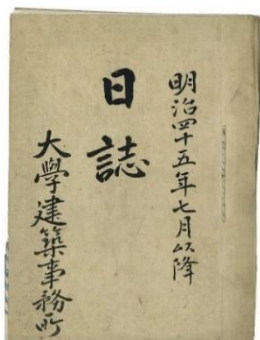 明治四十五年七月以降
日誌
大學建築事務所